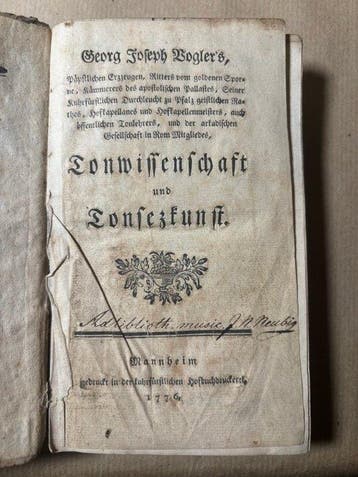 Georg Joseph Vogler's,
Päpstlichen Erzzeugen, Ritters vom goldenen Spor-
ne, Kämmerers des apostolischen Pallastes, Seiner
Kuhrfürstlichen Durchleucht zu Pfalz geistlichen Ra-
thes, Hofkapellanes und Hofkapellenmeisters, auch
öffentlichen Tonlehrers, und der arkadischen
Gesellschaft in Rom Mitgliedes,
Tonwissenschaft
und
Tonsezkunst.
Ad biblioth. music. J. N. Neubig
Mannheim
gedruckt in der kuhrfürstlichen Hofbuchdruckerei,
1776.